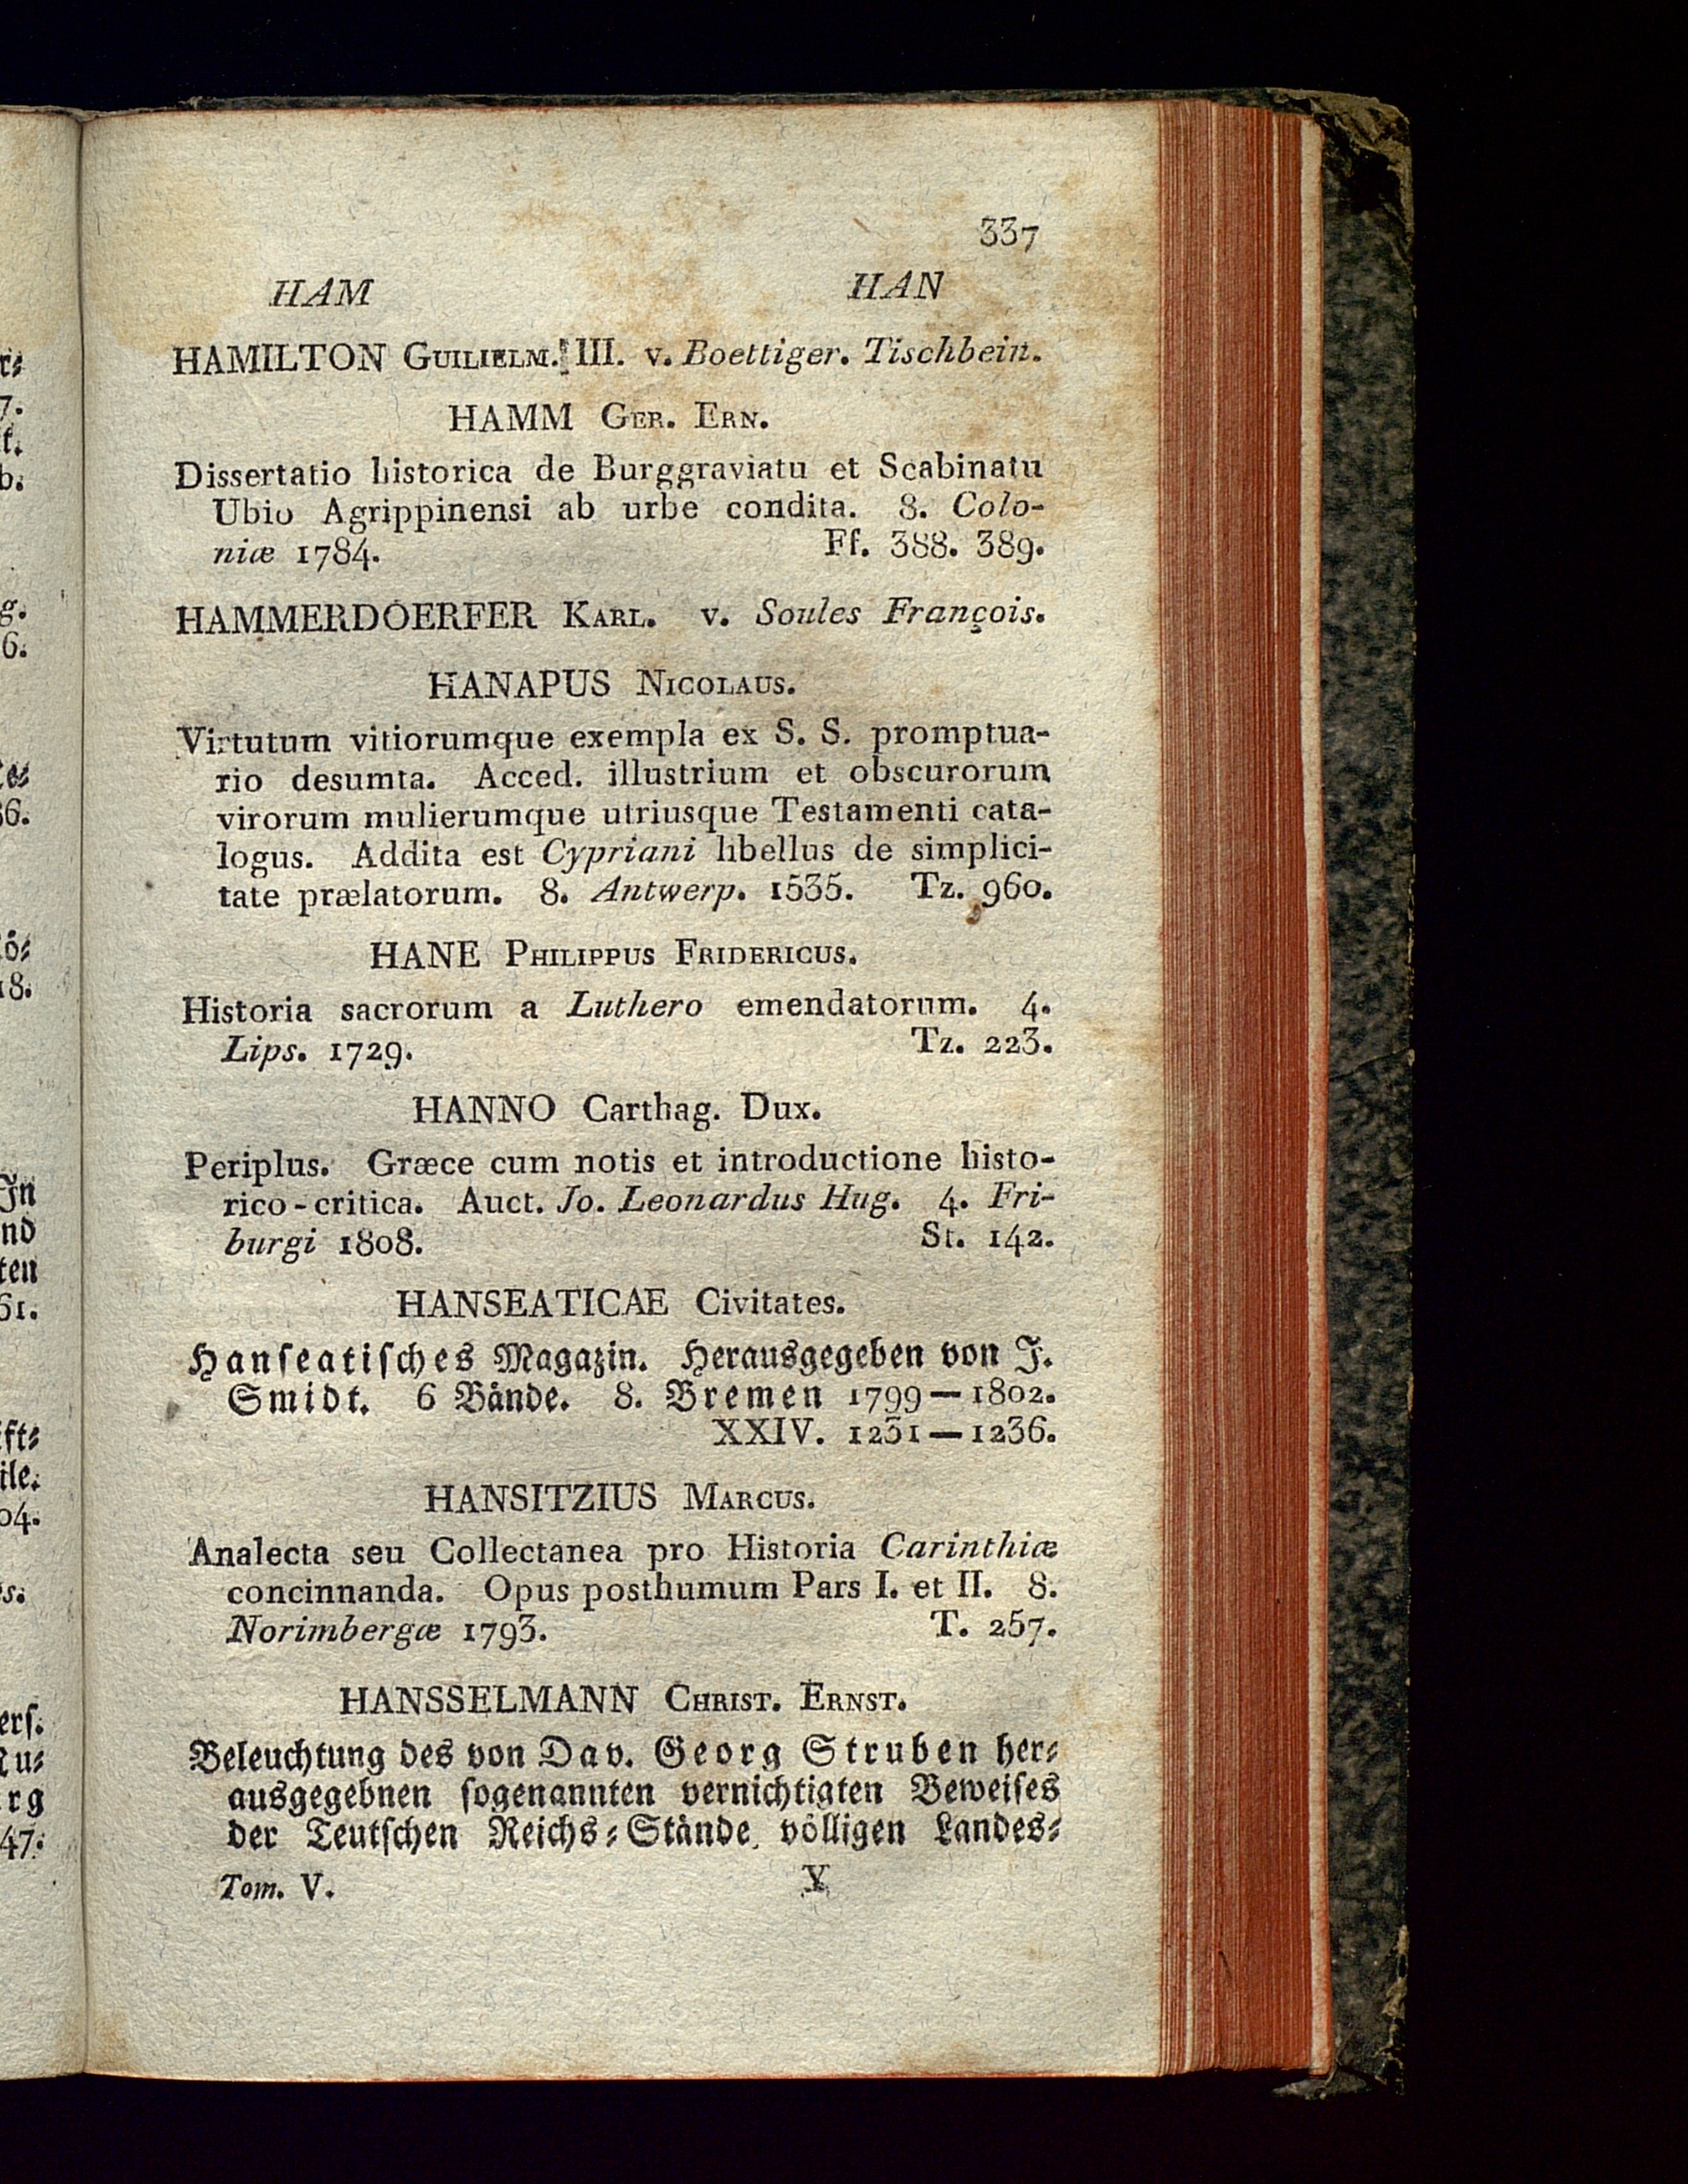 337
HAM HAN
HAMILTON GUILIELM. III. v. Boettiger. Tischbein.
HAMM GER. ERN.
Dissertatio historica de Burggraviatu et Scabinatu
Ubio Agrippinensi ab urbe condita. 8. Colo-
niæ 1784. Ff. 388. 389.
HAMMERDOERFER KARL. v. Soules François.
HANAPUS NICOLAUS.
Virtutum vitiorumque exempla ex S. S. promptua-
rio desumta. Acced. illustrium et obscurorum
virorum mulierumque utriusque Testamenti cata-
logus. Addita est Cypriani libellus de simplici-
tate prælatorum. 8. Antwerp. 1535. Tz. 960.
HANE PHILIPPUS FRIDERICUS.
Historia sacrorum a Luthero emendatorum. 4.
Lips. 1729. Tz. 223.
HANNO Carthag. Dux.
Periplus. Græce cum notis et introductione histo-
rico-critica. Auct. Jo. Leonardus Hug. 4. Fri-
burgi 1808. St. 142.
HANSEATICAE Civitates.
Hanſeatiſches Magazin. Herausgegeben von J.
Smidt. 6 Bände. 8. Bremen 1799—1802.
XXIV. 1231—1236.
HANSITZIUS MARCUS.
Analecta seu Collectanea pro Historia Carinthiæ
concinnanda. Opus posthumum Pars I. et II. 8.
Norimbergæ 1793. T. 257.
HANSSELMANN CHRIST. ERNST.
Beleuchtung des von Dav. Georg Struben her⸗
ausgegebnen ſogenannten vernichtigten Beweiſes
der Teutſchen Reichs⸗Stände völligen Landes⸗
Tom. V. Y